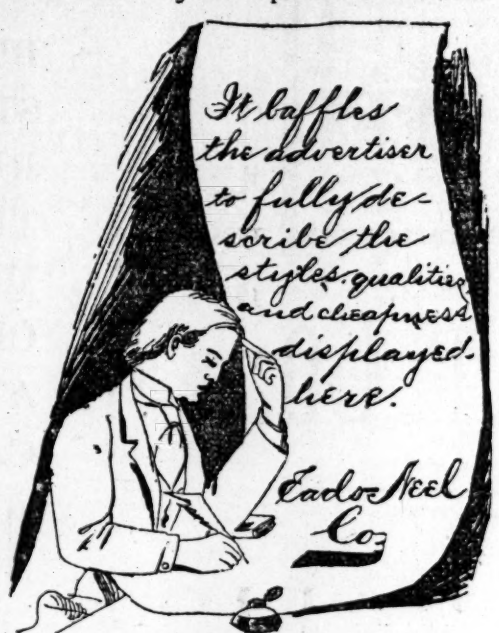 It baffles
the advertiser
to fully de-
scribe the
styles, qualities
and cheapness
displayed
here.
Eads-Neel
Co.